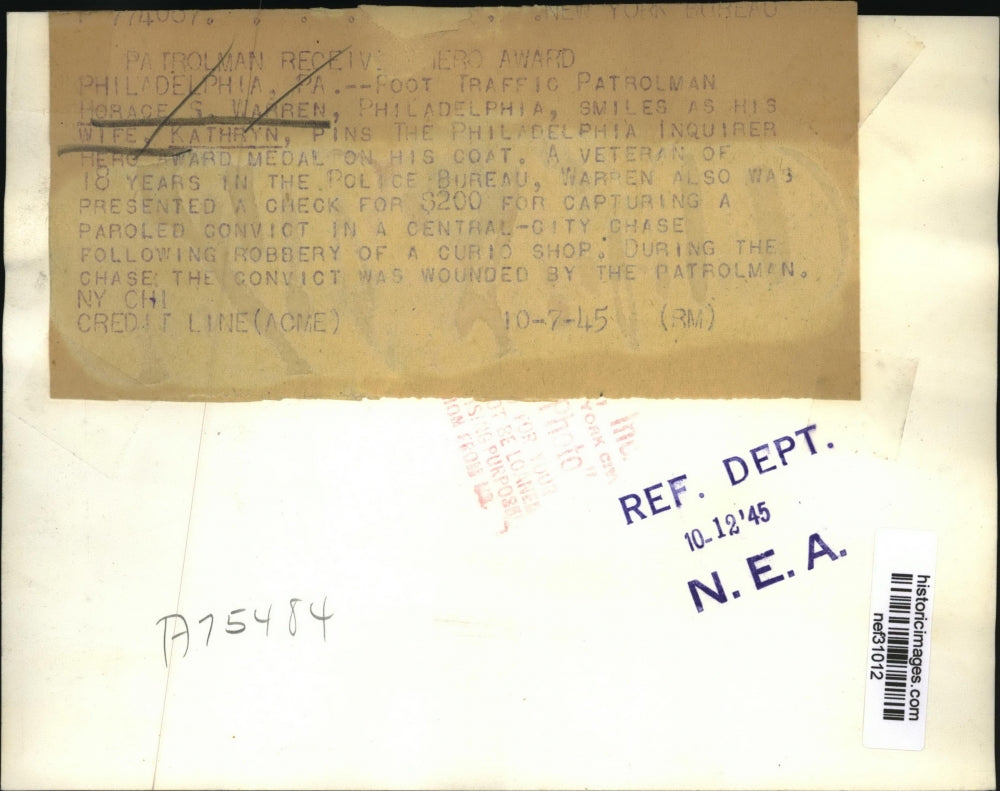 NEW YORK BUREAU
PATROLMAN RECEIV HERO AWARD
PHILADELPHIA, PA.--FOOT TRAFFIC PATROLMAN
HORACE S. WARREN, PHILADELPHIA, SMILES AS HIS
WIFE, KATHRYN, PINS THE PHILADELPHIA INQUIRER
HERO AWARD MEDAL ON HIS COAT. A VETERAN OF
18 YEARS IN THE POLICE BUREAU, WARREN ALSO WAS
PRESENTED A CHECK FOR $200 FOR CAPTURING A
PAROLED CONVICT IN A CENTRAL-CITY CHASE
FOLLOWING ROBBERY OF A CURIO SHOP. DURING THE
CHASE THE CONVICT WAS WOUNDED BY THE PATROLMAN.
NY CHI
CREDIT LINE(ACME) 10-7-45 (RM)
Inc.
YORK CITY
Photo"
FOR YOUR
BE LOANED
PURPOSES
ION FROM
REF. DEPT.
10-12'45
N.E.A.
A75484
historicimages.com
nef31012